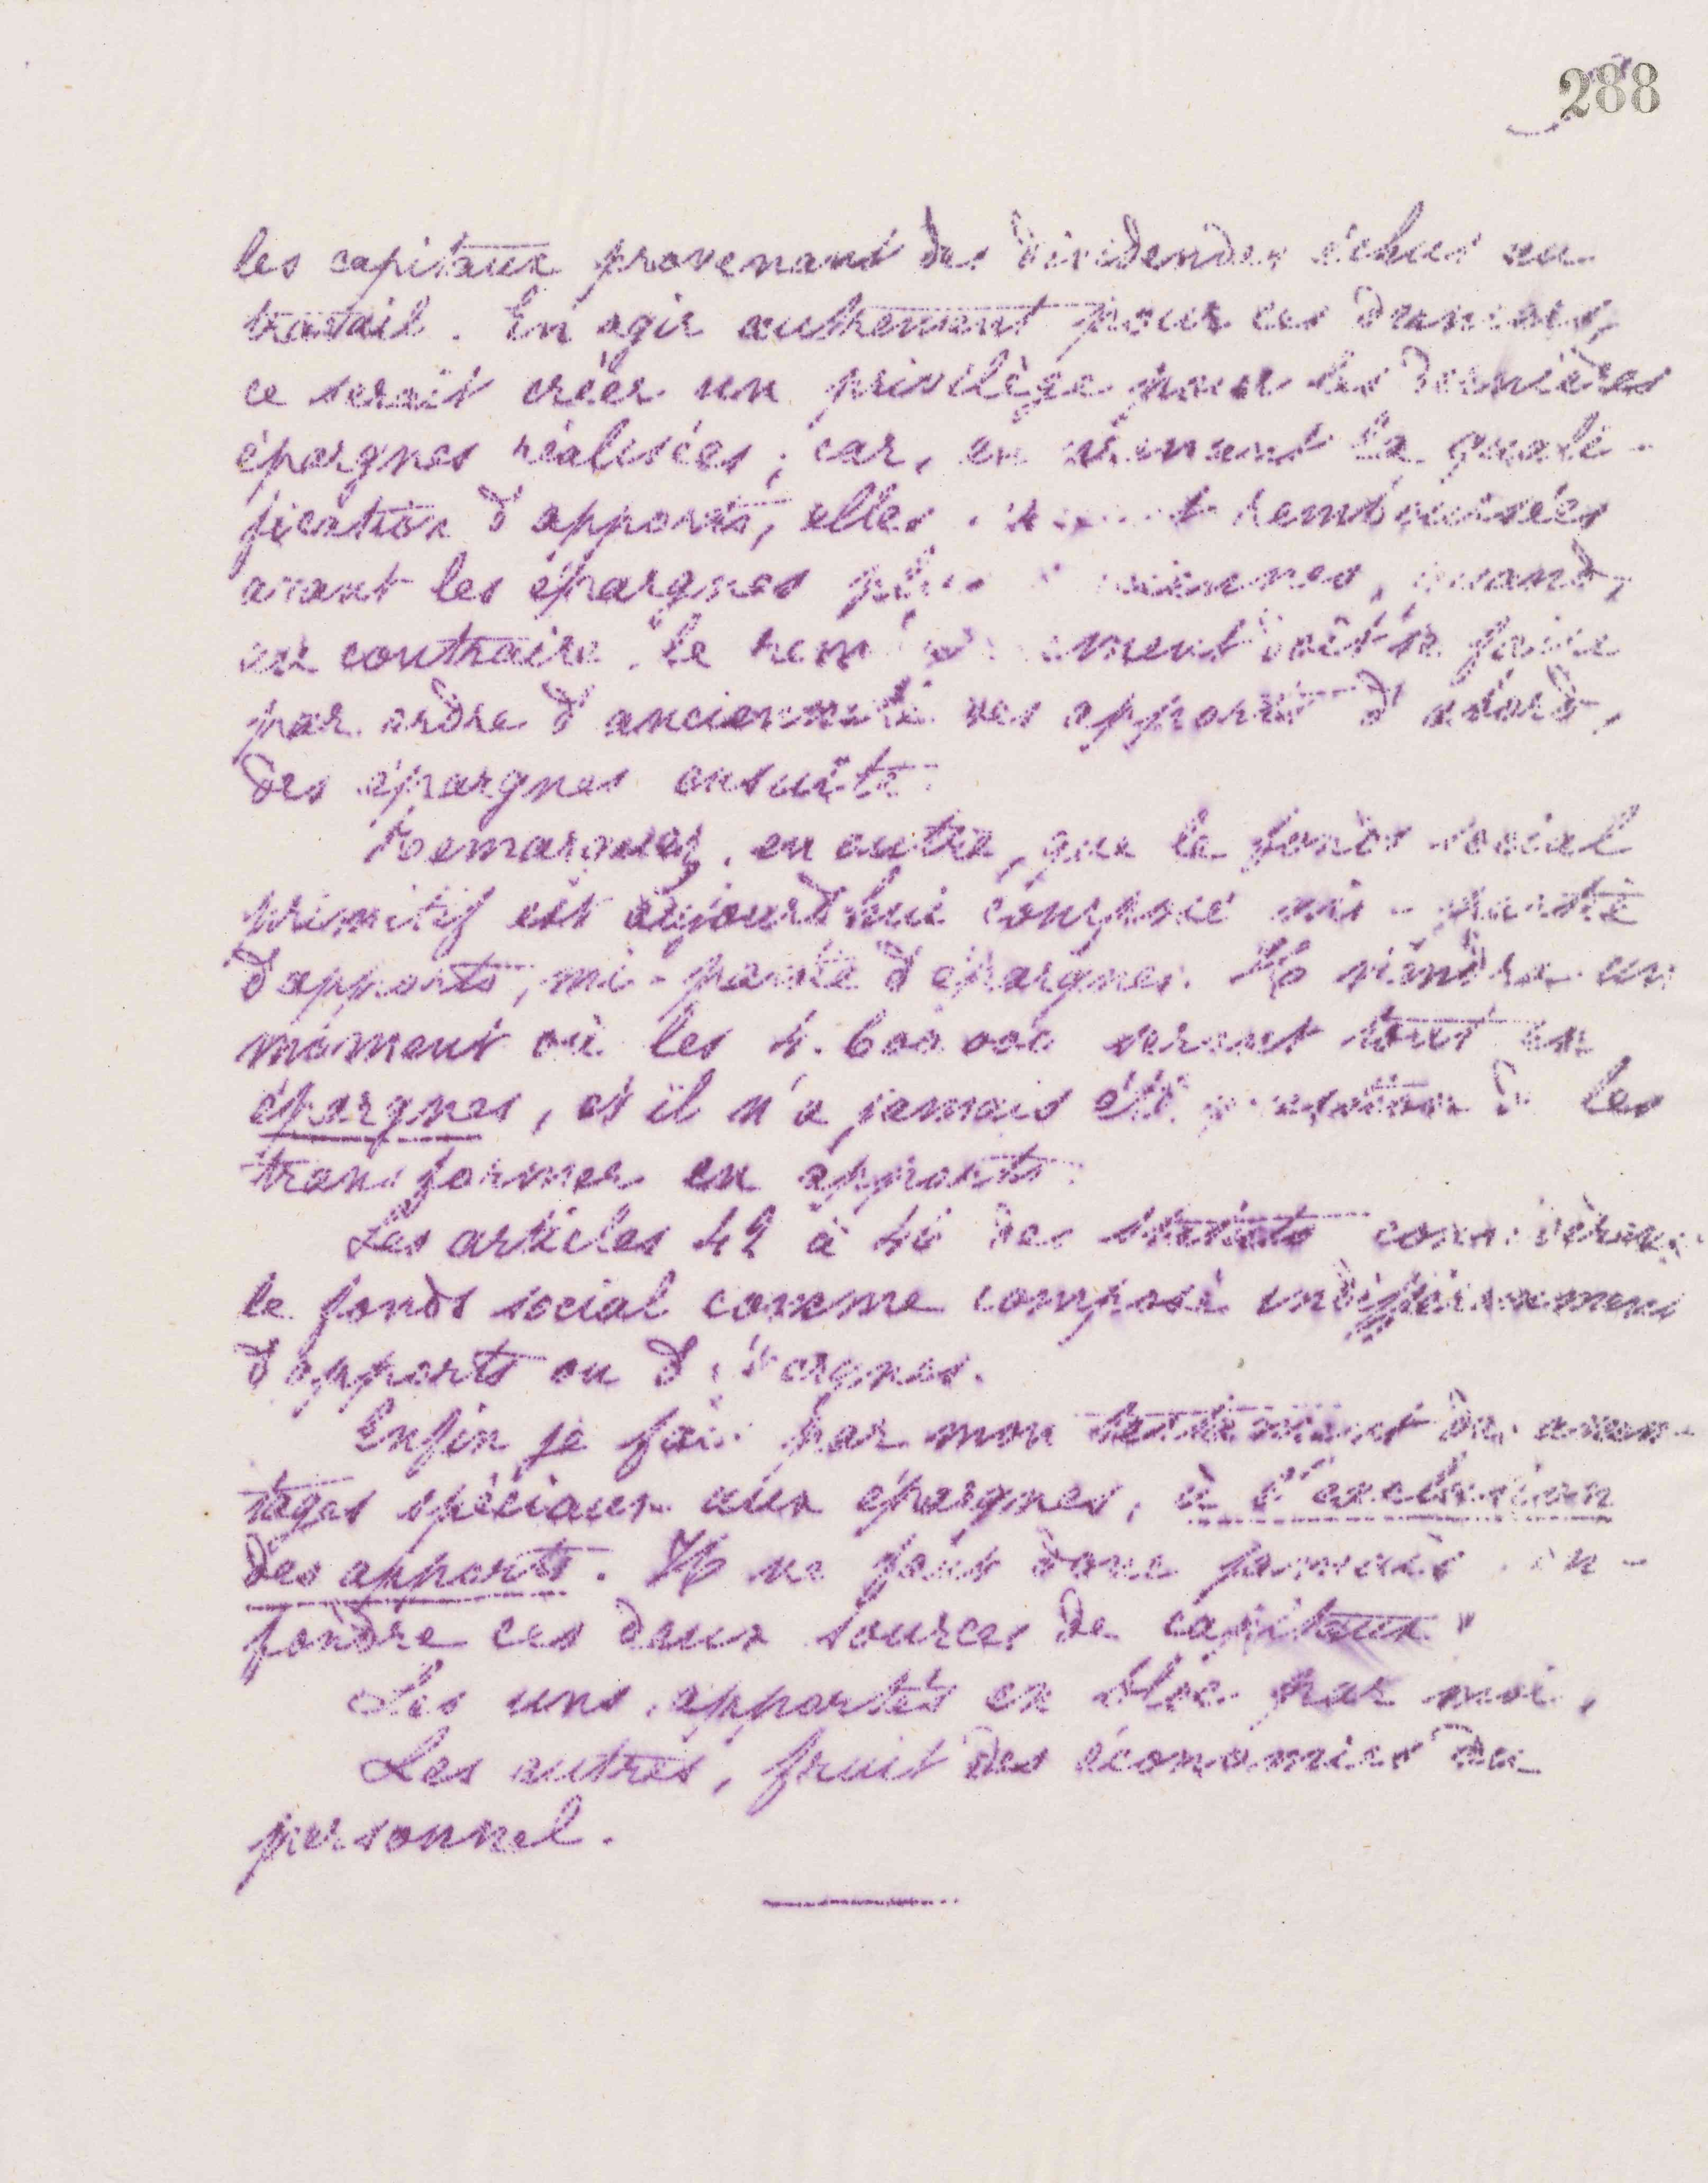 288
les capitaux provenant des dividendes échus au
travail. En agir autrement pour ces derniers,
ce serait créer un privilège pour les dernières
épargnes réalisées ; car, en prenant la quali-
fication d'apports, elles seraient remboursées
avant les épargnes plus anciennes, quand,
au contraire, le remboursement doit se faire
par ordre d'ancienneté des apports d'abord,
des épargnes ensuite.
Remarquez, en outre, que le fonds social
primitif est aujourd'hui composé mi-partie
d'apports, mi-partie d'épargnes. Il viendra un
moment où les 4.600.000 seront tout en
épargnes, et il n'a jamais été question de les
transformer en apports.
Les articles 42 à des statuts considèrent
le fonds social comme composé indifféremment
d'apports ou d'épargnes.
Enfin je fais par mon testament des avan-
tages spéciaux aux épargnes, à l'exclusion
des apports. Il ne faut donc jamais con-
fondre ces deux sources de capitaux
Les uns, apportés en bloc par moi,
Les autres, fruit des économies du
personnel.